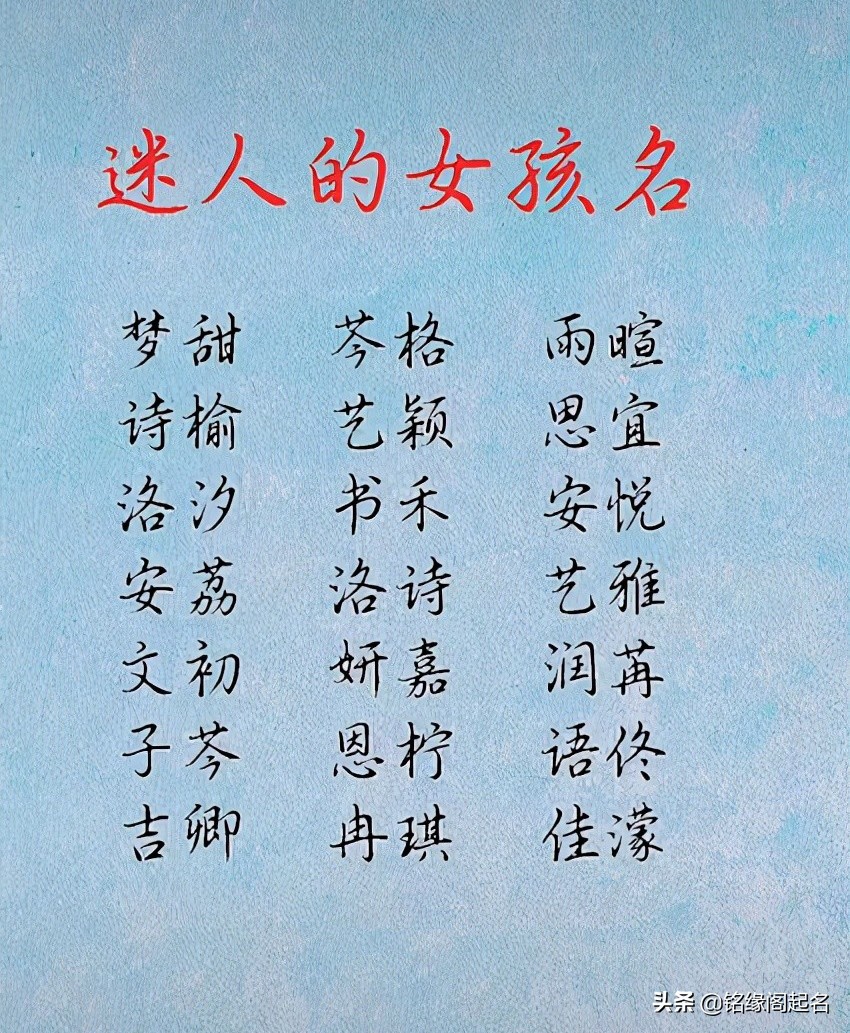 迷人的女孩名
梦甜 芩格 雨暄
诗榆 艺颖 思宜
洛汐 书禾 安悦
安荔 洛诗 艺雅
文初 妍嘉 润苒
子芩 恩柠 语佟
吉卿 冉琪 佳濛
头条 @铭缘阁起名